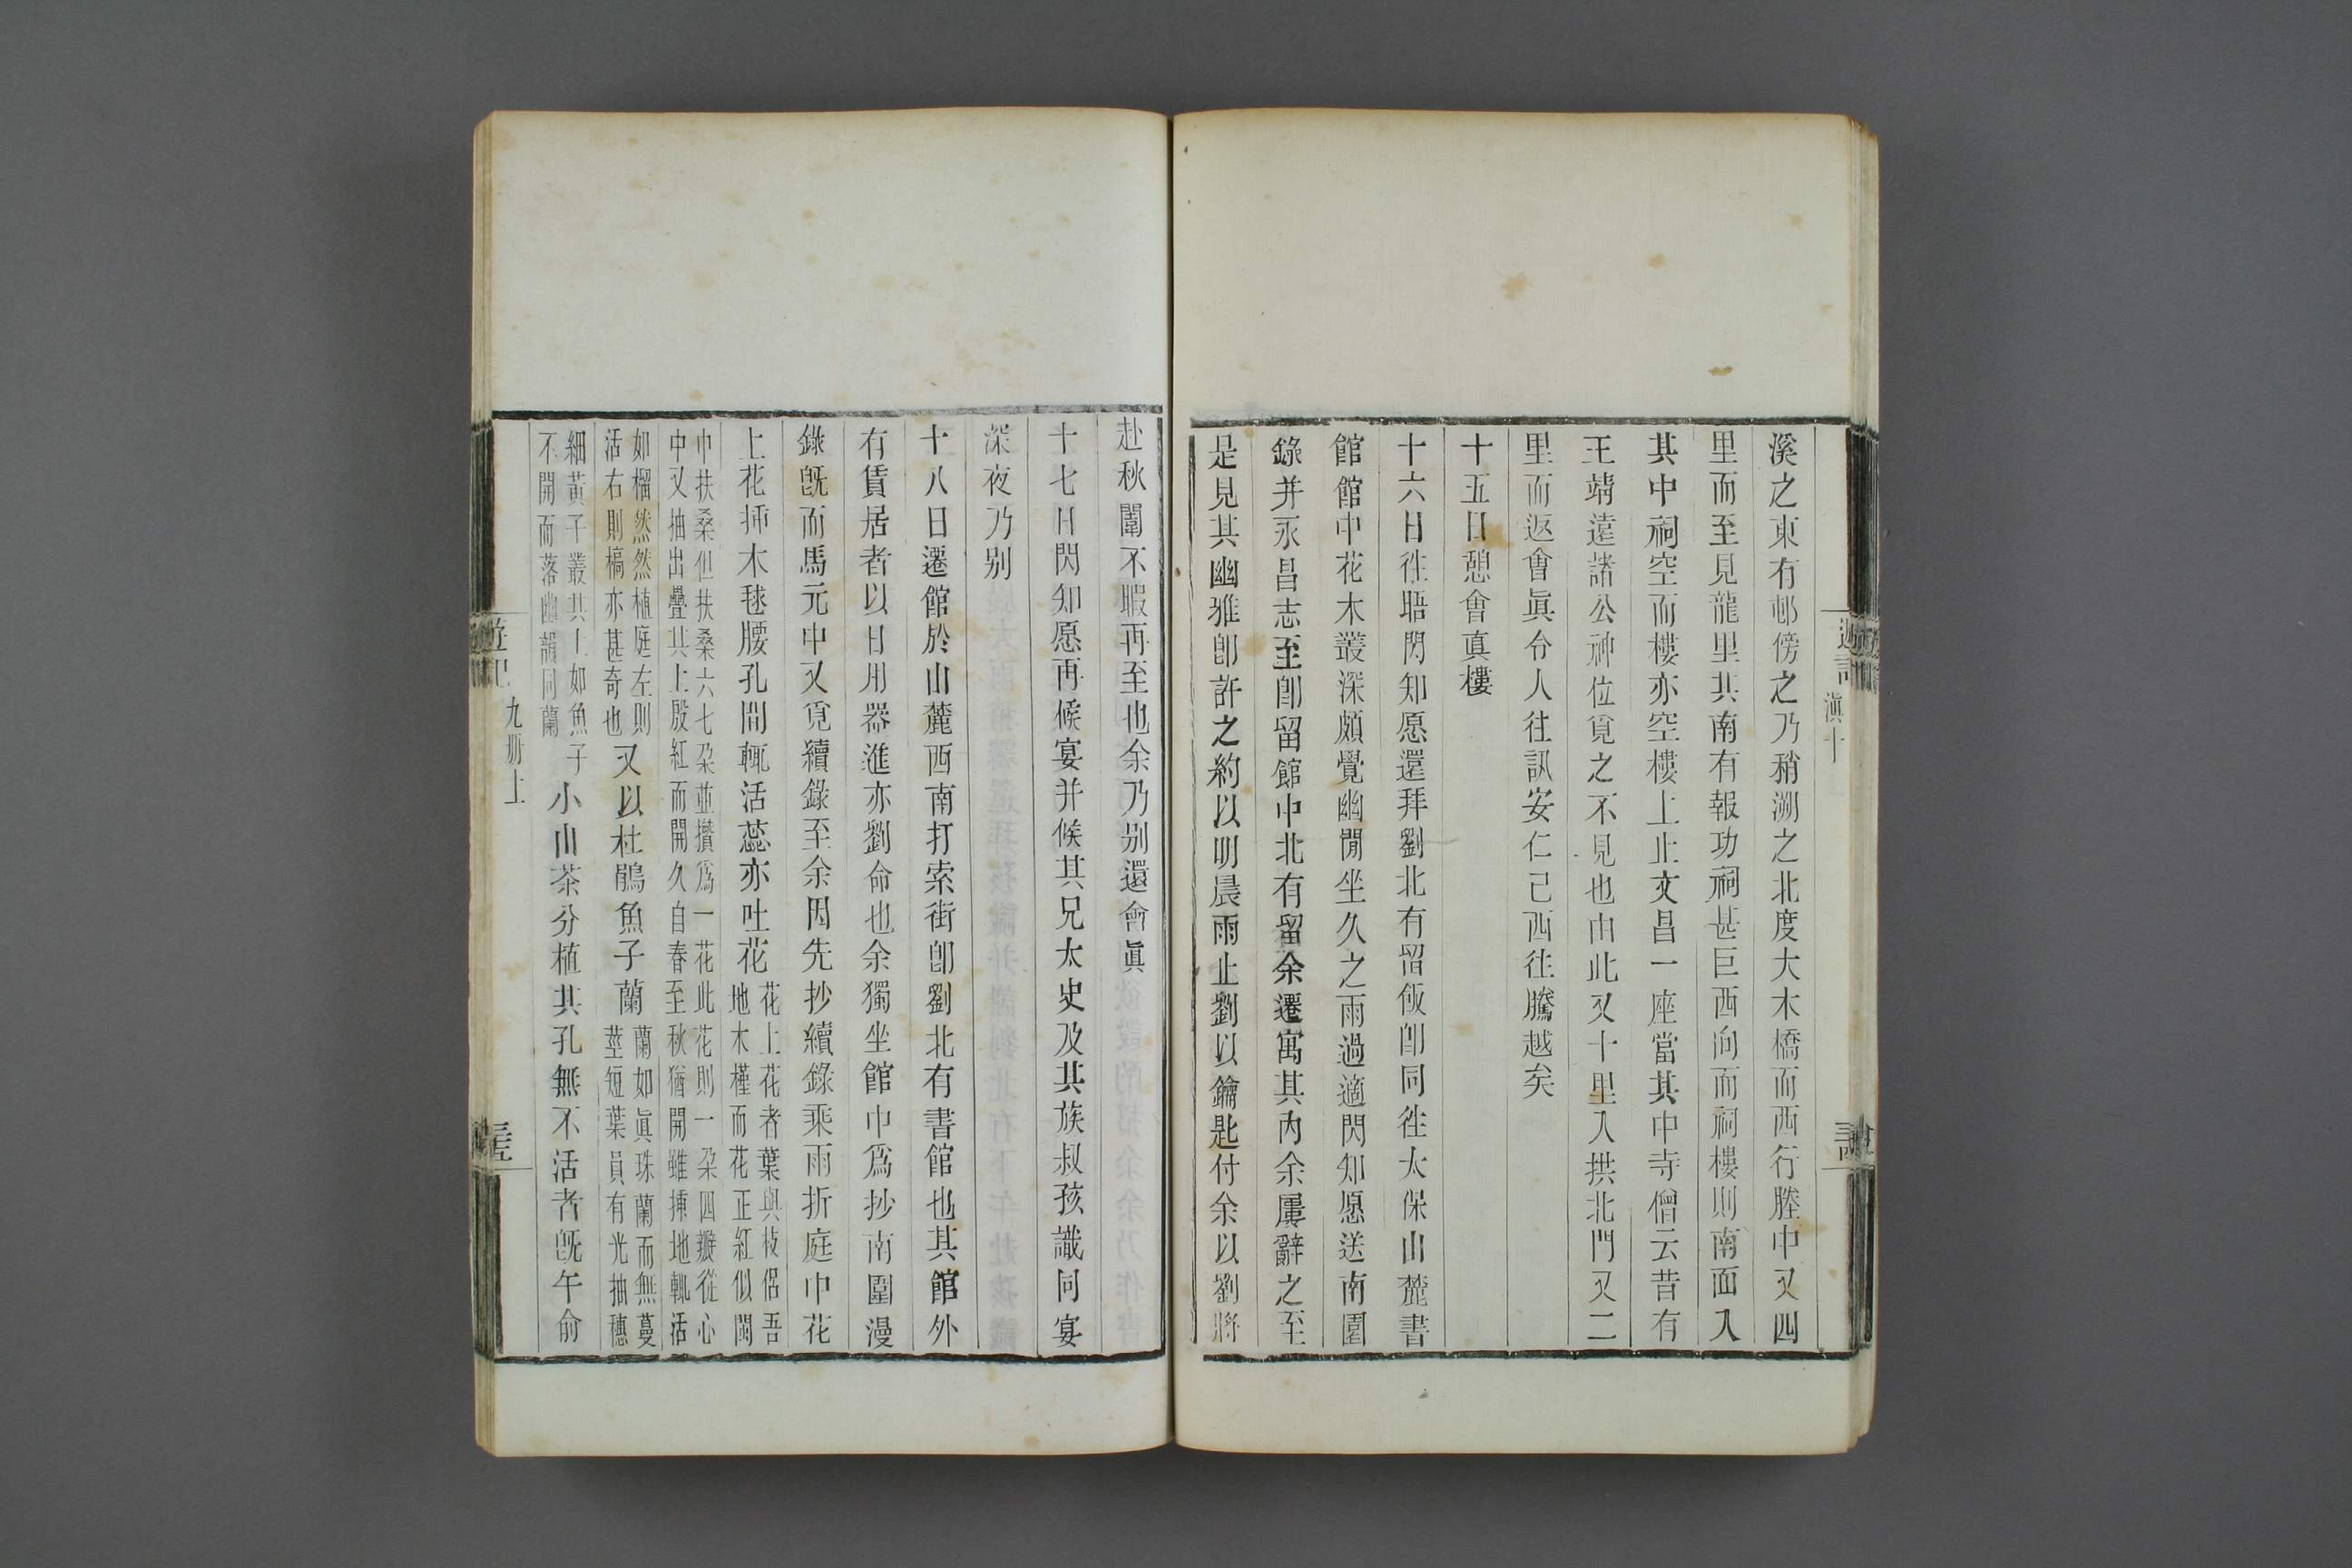 溪之東有邨傍之乃稍溯之北度大木橋而西行塍中又四
里而至見龍里其南有報功祠甚巨西向而祠樓則南面入
其中祠空而樓亦空樓上止文昌一座當其中寺僧云昔有
王靖遠諸公神位覓之不見也由此又十里入拱北門又二
里而返會眞令人往訊安仁已西往騰越矣
十五日憩會真樓
十六日往晤閃知愿還拜劉北有留飯卽同往太保山麓書
館館中花木叢深頗覺幽閒坐久之雨過適閃知愿送南園
錄并永昌志至卽留館中北有留余遷寓其內余屢辭之至
是見其幽雅卽許之約以明晨雨止劉以鑰匙付余以劉將
赴秋闈不暇再至也余乃别還會眞
十七日閃知愿再候宴并候其兄太史及其族叔孩識同宴
深夜乃别
十八日遷館於山麓西南打索街卽劉北有書館也其館外
有賃居者以日用器進亦劉命也余獨坐館中爲抄南園漫
錄旣而馬元中又覓續錄至余因先抄續錄乘雨折庭中花
上花插木毬腰孔間輒活蕊亦吐花
花上花者葉與枝侶吾
地木槿而花正紅似閩
中扶桑但扶桑六七朶並攢爲一花此花則一朶四瓣從心
中又抽出疊其上殷紅而開久自春至秋猶開雖揷地輒活
如榴然然植庭左則
活右則槁亦甚奇也
又以杜鵑魚子蘭
蘭如眞珠蘭而無蔓
莖短葉員有光抽穗
細黃子叢其上如魚子
不開而落幽韻同蘭
小山茶分植其孔無不活者旣午俞
遊記
九册上
滇十